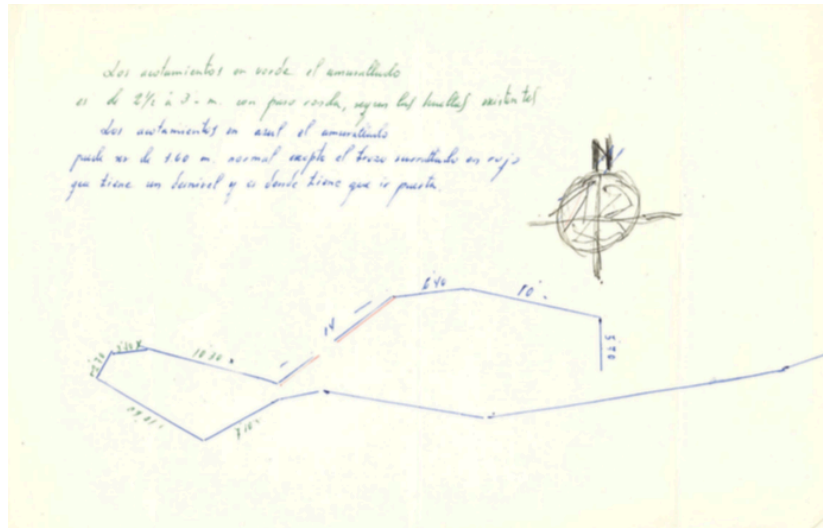 Los acotamientos en verde el amurallado
es de 2½ a 3 - m. con paso ronda, segun las huellas existentes
Los acotamientos en azul el amurallado
puede ser de 1.60 m. normal excepto el trozo amurallado en rojo
que tiene un desnivel y es donde tiene que ir puerta.
N
6'40
10'
14
5'70
10'30
7'10